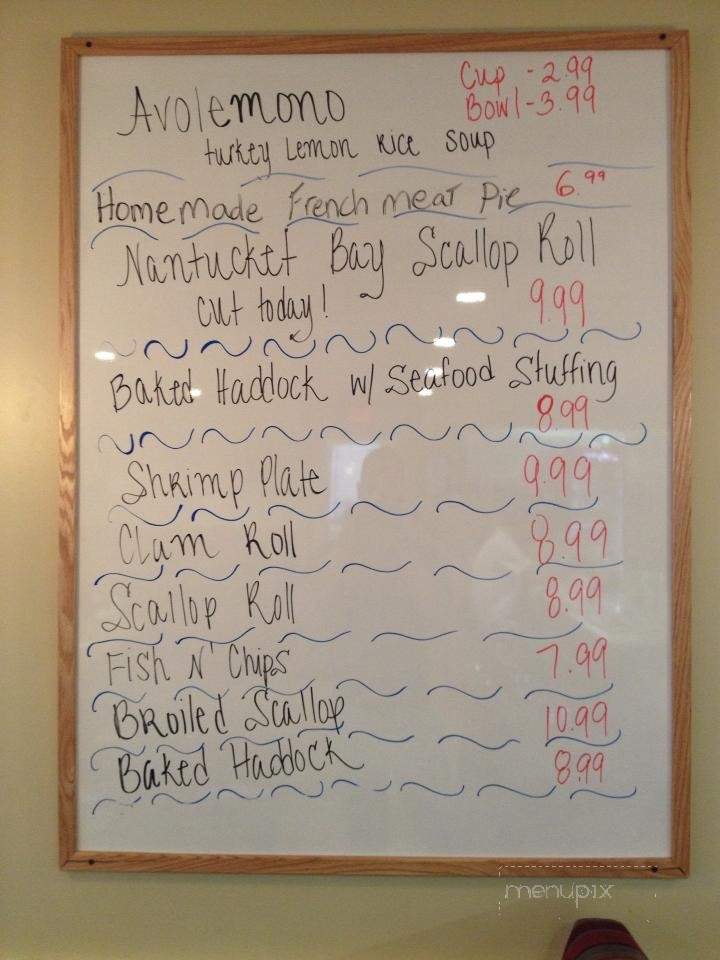 Avolemono
Cup - 2.99
Bowl - 3.99
turkey Lemon Rice Soup
Homemade French meat Pie 6.99
Nantucket Bay Scallop Roll
cut today! 9.99
Baked Haddock w/ Seafood Stuffing
8.99
Shrimp Plate 9.99
Clam Roll 8.99
Scallop Roll 8.99
Fish N' Chips 7.99
Broiled Scallop 10.99
Baked Haddock 8.99
menupix